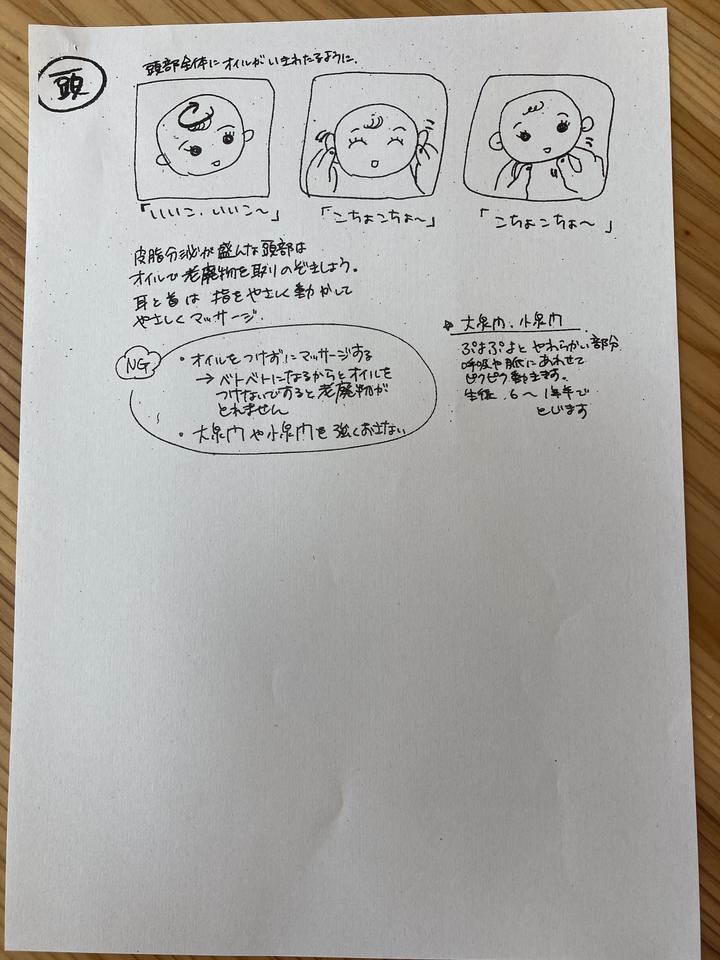 頭
頭部全体にオイルがいきわたるように.
「いいこ.いいこ〜」
「こちょこちょ〜」
「こちょこちょ〜」
皮脂分泌が盛んな頭部は
オイルで老廃物を取りのぞきましょう。
耳と首は 指をやさしく動かして
やさしくマッサージ.
NG
・オイルをつけずにマッサージする
→ベトベトになるからとオイルを
つけないですると老廃物が
とれません
・大泉門や小泉門を強くおさない
大泉門.小泉門
ぷよぷよとやわらかい部分.
呼吸や脈にあわせて
ピクピク動きます。
生後.6〜1年半で
とじます